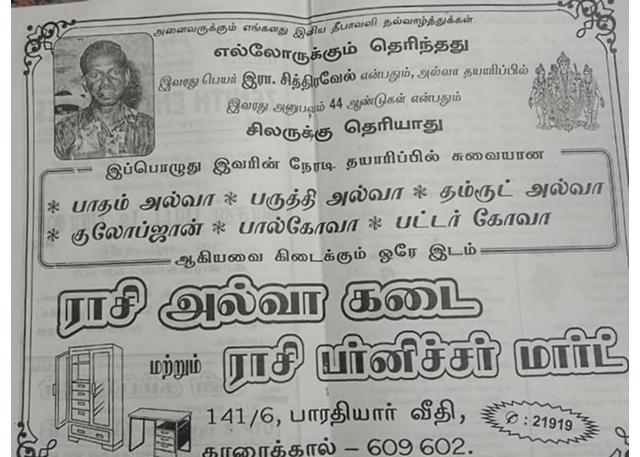 அனைவருக்கும் எங்களது இனிய தீபாவளி நல்வாழ்த்துக்கள்
எல்லோருக்கும் தெரிந்தது
இவரது பெயர் இரா. சித்திரவேல் என்பதும், அல்வா தயாரிப்பில்
இவரது அனுபவம் 44 ஆண்டுகள் என்பதும்
சிலருக்கு தெரியாது
இப்பொழுது இவரின் நேரடி தயாரிப்பில் சுவையான
* பாதம் அல்வா * பருத்தி அல்வா * தம்ரூட் அல்வா
* குலோப்ஜான் * பால்கோவா * பட்டர் கோவா
ஆகியவை கிடைக்கும் ஒரே இடம்
ராசி அல்வா கடை
மற்றும் ராசி பர்னிச்சர் மார்ட்
141/6, பாரதியார் வீதி,
✆ : 21919
காரைக்கால் – 609 602.